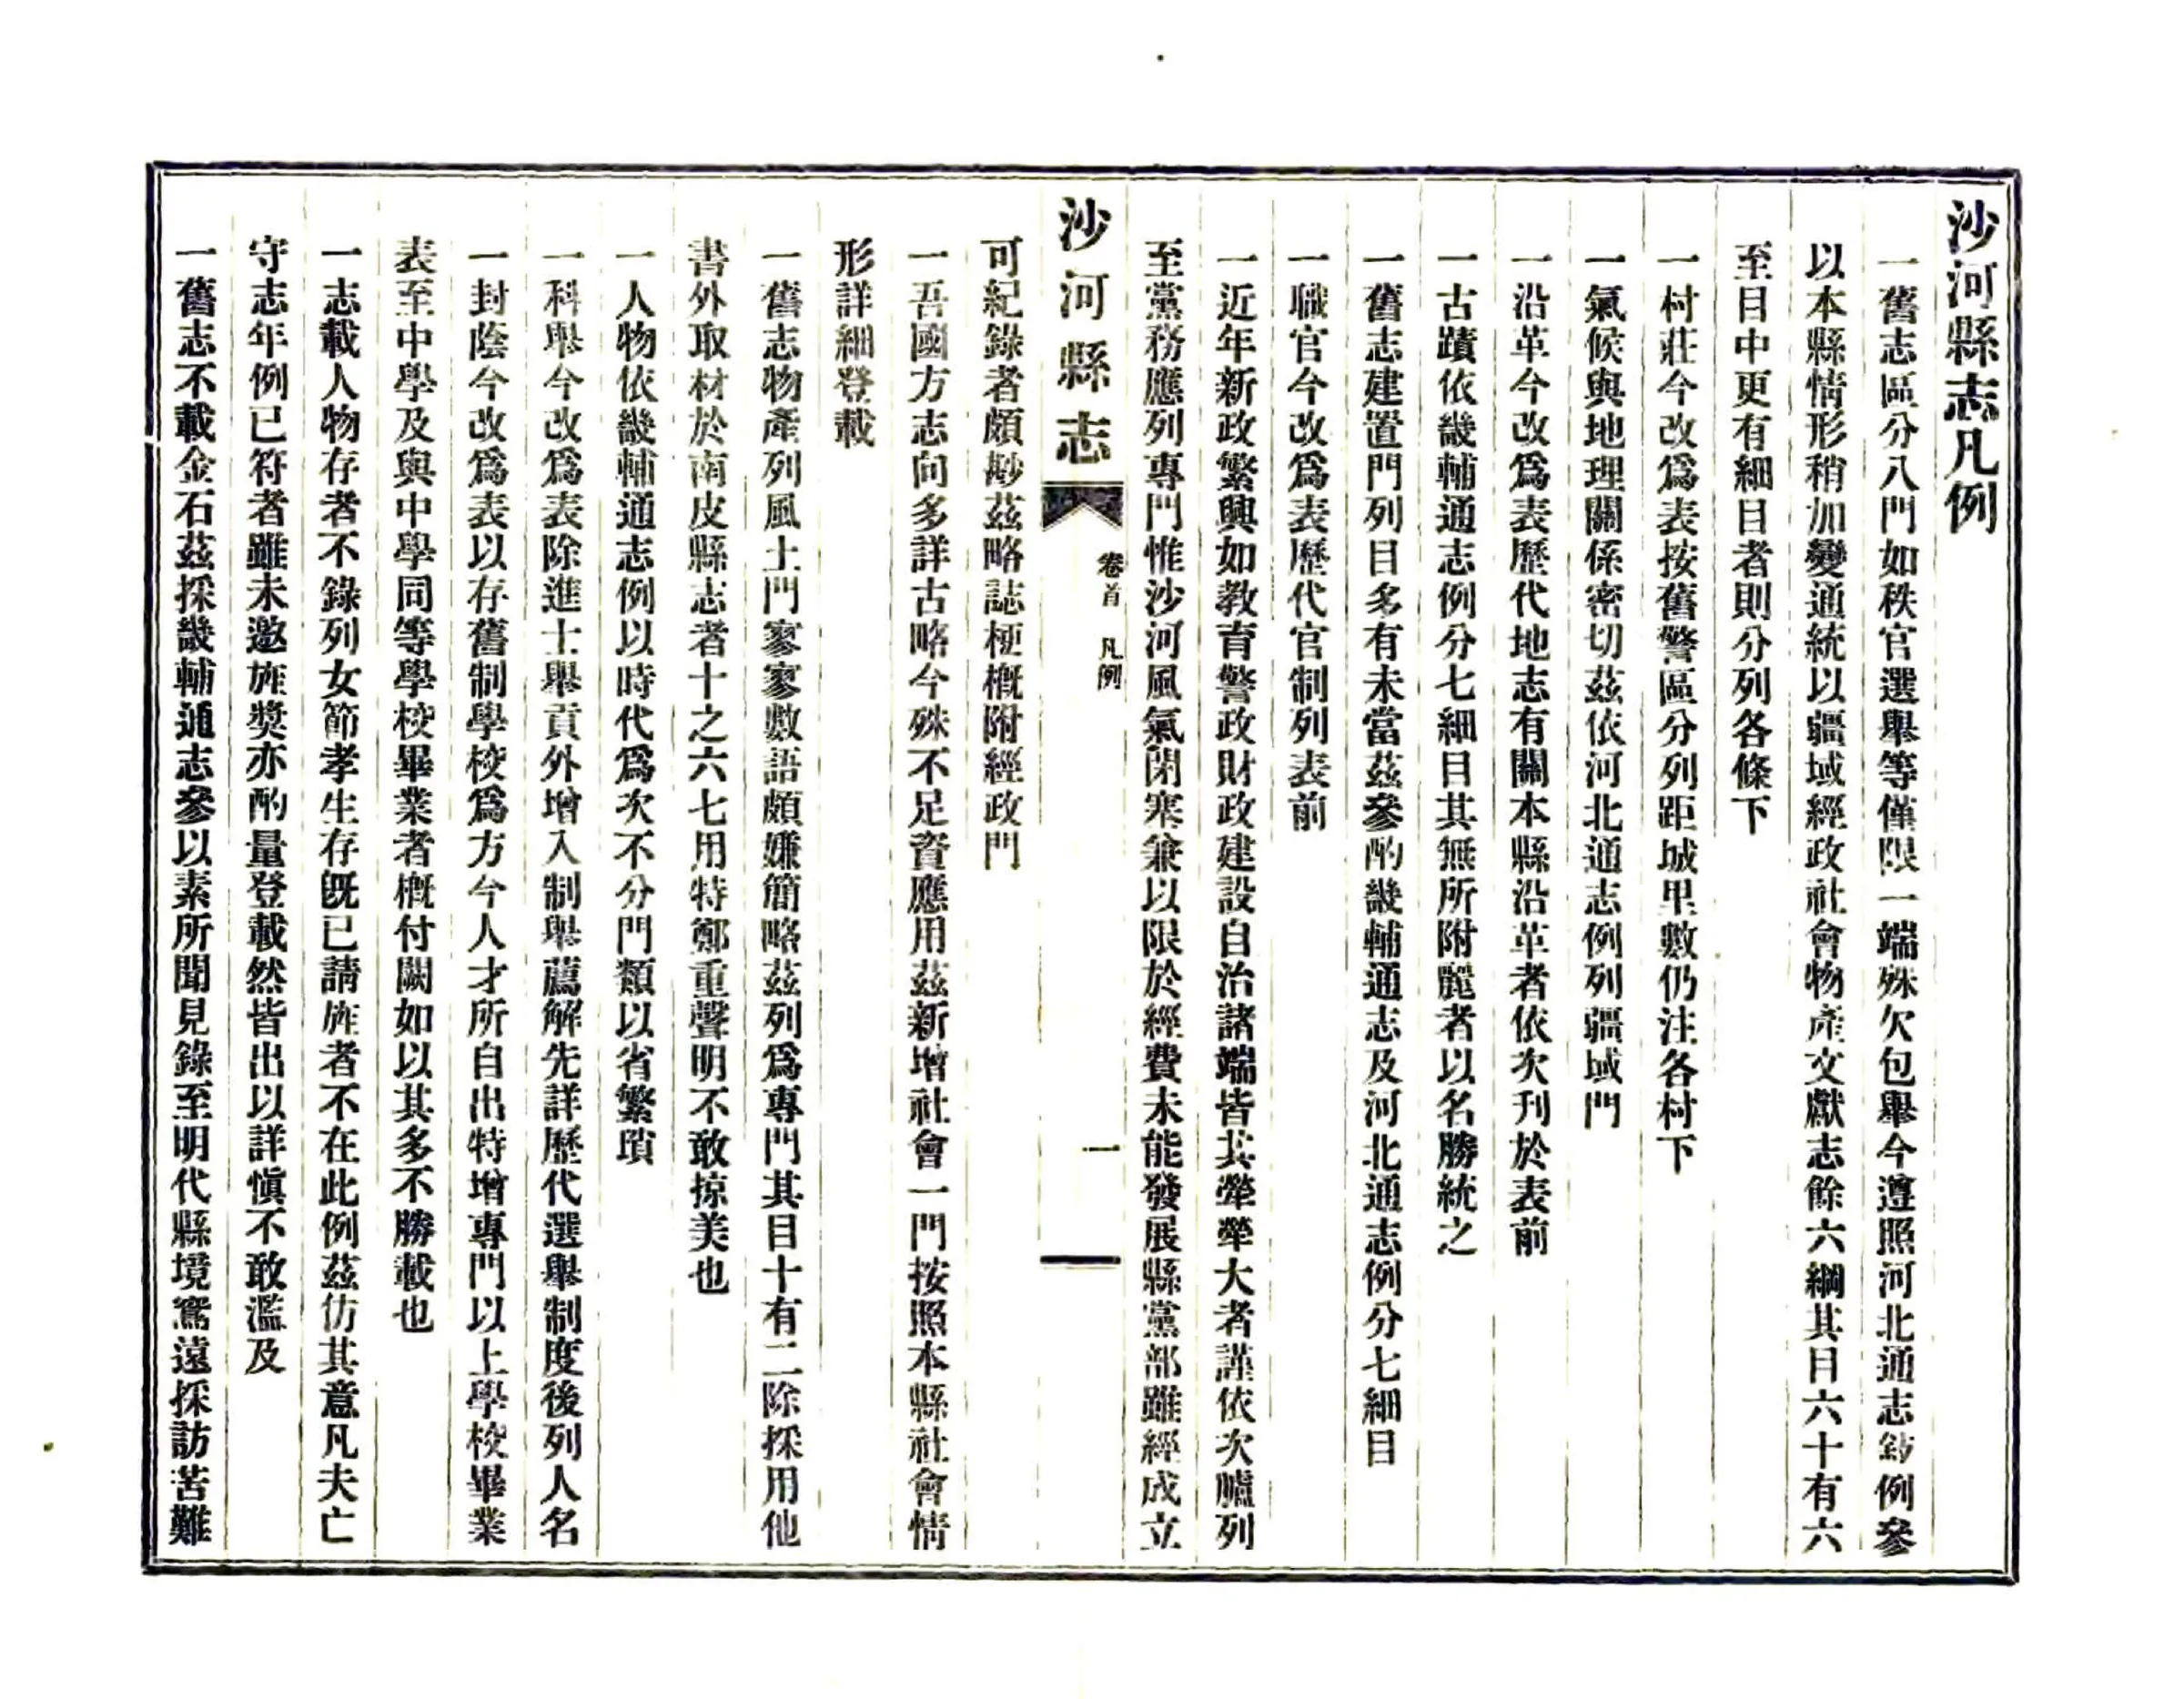 沙河縣志凡例
一舊志區分八門如秩官選舉等僅限一端殊欠包舉今遵照河北通志鈔例參
以本縣情形稍加變通統以疆域經政社會物產文獻志餘六綱其目六十有六
至目中更有細目者則分列各條下
一村莊今改爲表按舊警區分列距城里數仍注各村下
一氣候與地理關係密切茲依河北通志例列疆域門
一沿革今改爲表歷代地志有關本縣沿革者依次刋於表前
一古蹟依畿輔通志例分七細目其無所附麗者以名勝統之
一舊志建置門列目多有未當茲參酌畿輔通志及河北通志例分七細目
一職官今改爲表歷代官制列表前
一近年新政繁興如教育警政財政建設自治諸端皆其犖犖大者謹依次臚列
至黨務應列專門惟沙河風氣閉塞兼以限於經費未能發展縣黨部雖經成立
沙河縣志
卷首 凡例
一
可紀錄者頗尠茲略誌梗概附經政門
一吾國方志向多詳古略今殊不足資應用茲新增社會一門按照本縣社會情
形詳細登載
一舊志物產列風土門寥寥數語頗嫌簡略茲列爲專門其目十有二除採用他
書外取材於南皮縣志者十之六七用特鄭重聲明不敢掠美也
一人物依畿輔通志例以時代爲次不分門類以省繁瑣
一科舉今改爲表除進士舉貢外增入制舉薦解先詳歷代選舉制度後列人名
一封蔭今改爲表以存舊制學校爲方今人才所自出特增專門以上學校畢業
表至中學及與中學同等學校畢業者概付闕如以其多不勝載也
一志載人物存者不錄列女節孝生存旣已請旌者不在此例茲仿其意凡夫亡
守志年例已符者雖未邀旌獎亦酌量登載然皆出以詳愼不敢濫及
一舊志不載金石茲採畿輔通志參以素所聞見錄至明代縣境寫遠採訪苦難